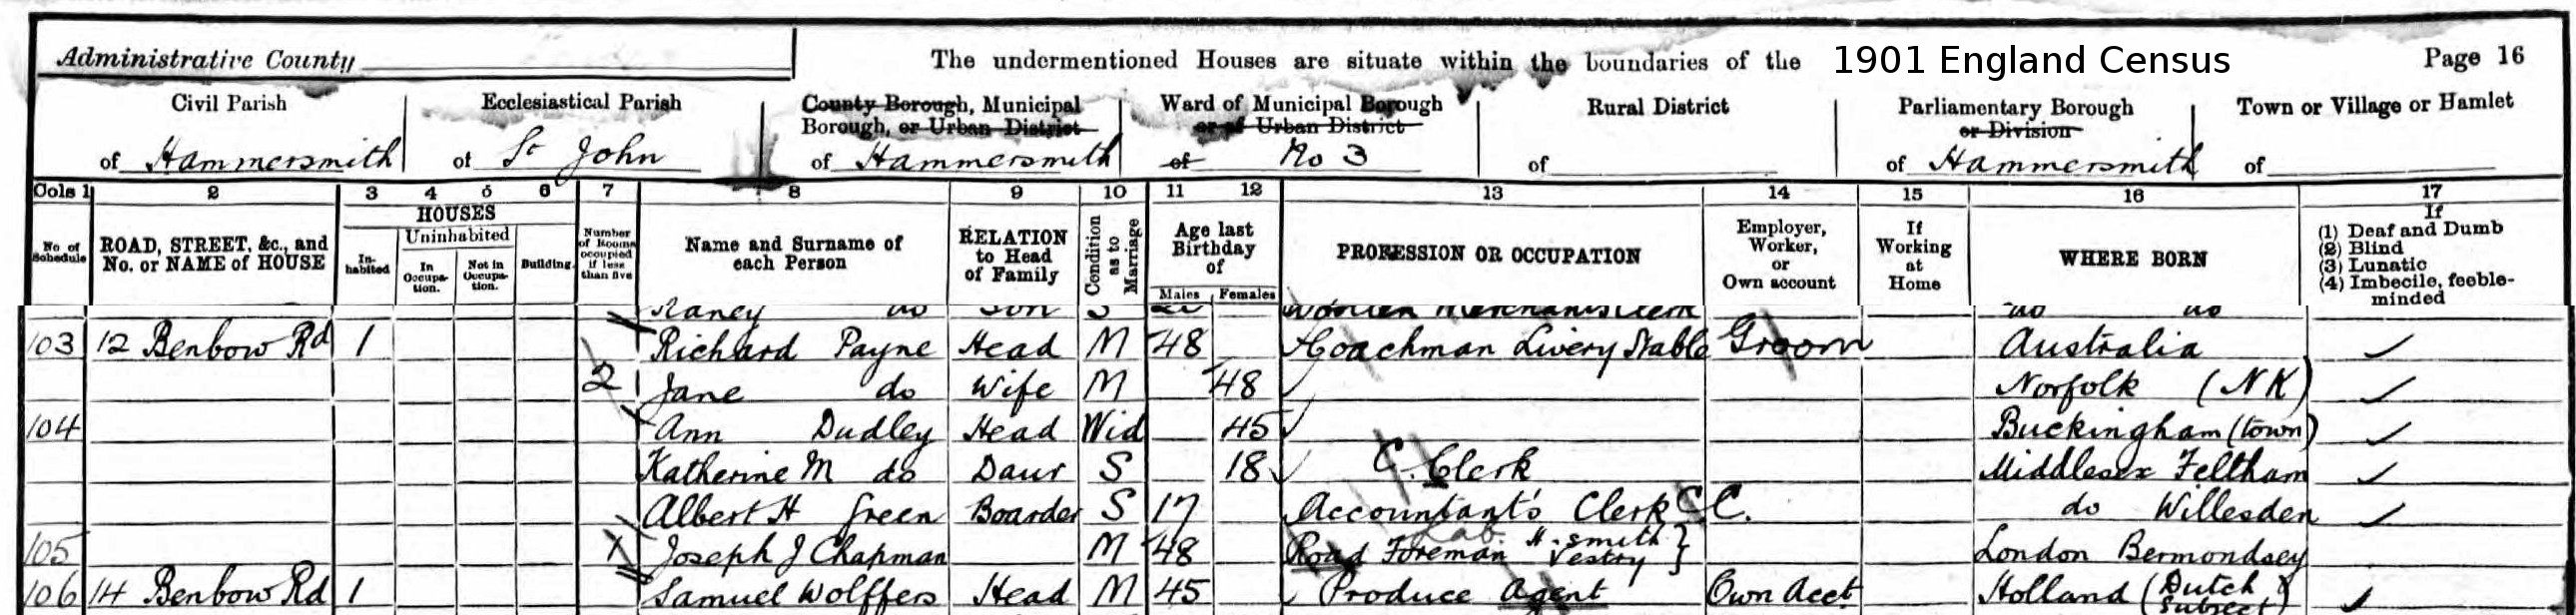 Administrative County The undermentioned Houses are situate within the boundaries of the 1901 England Census Page 16
Civil Parish Ecclesiastical Parish County Borough, Municipal Ward of Municipal Borough Rural District Parliamentary Borough Town or Village or Hamlet
Borough, or Urban District or of Urban District or Division
of Hammersmith of St John of Hammersmith of No 3 of of Hammersmith of
Cols 1 2 3 4 5 6 7 8 9 10 11 12 13 14 15 16 17
No. of Schedule ROAD, STREET, &c., and No. or NAME of HOUSE HOUSES In-habited Uninhabited In Occupa-tion. Not in Occupa-tion. Building. Number of Rooms occupied if less than five Name and Surname of each Person RELATION to Head of Family Condition as to Marriage Age last Birthday of Males Females PROFESSION OR OCCUPATION Employer, Worker, or Own account If Working at Home WHERE BORN If (1) Deaf and Dumb (2) Blind (3) Lunatic (4) Imbecile, feeble-minded
do Son S do do
103 12 Benbow Rd 1 Richard Payne Head M 48 Coachman Livery Stable Groom Australia
2 Jane do Wife M 48 Norfolk (NK)
104 Ann Dudley Head Wid 45 Buckingham (town)
Katherine M do Daur S 18 C. Clerk Middlesex Feltham
Albert H Green Boarder S 17 Accountant's Clerk C.C. do Willesden
105 1 Joseph J Chapman M 48 Road Foreman Lab. H. smith Vestry } London Bermondsey
106 14 Benbow Rd 1 Samuel Wolffers Head M 45 Produce Agent Own Acct Holland (Dutch Subject)